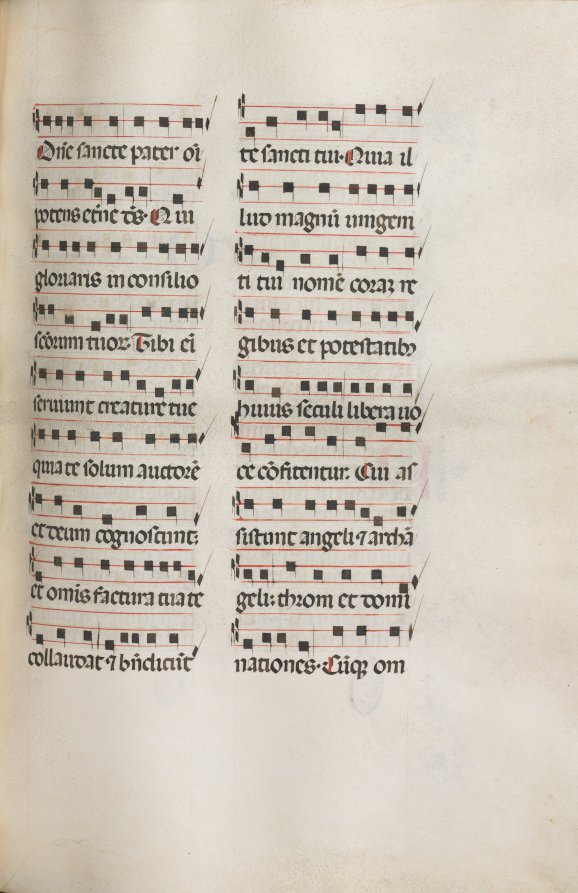 Dñe sancte pater oĩ
potens et̃ne d̃s. Qui
gloriaris in consilio
sc̃orum tuoꝝ. Tibi eĩ
seruiunt creature tue
quia te solum auctorẽ
et deum cognoscunt:
et omĩs factura tua te
collaudat ⁊ bñdicũt
te sancti tui. Quia il
lud magnũ unigeni
ti tui nomẽ coraꝫ re
gibus et potestatibꝫ
huius seculi libera uo
ce cõfitentur. Cui as
sistunt angeli ⁊ archã
geli: throni et domi
nationes. Cũqꝫ om